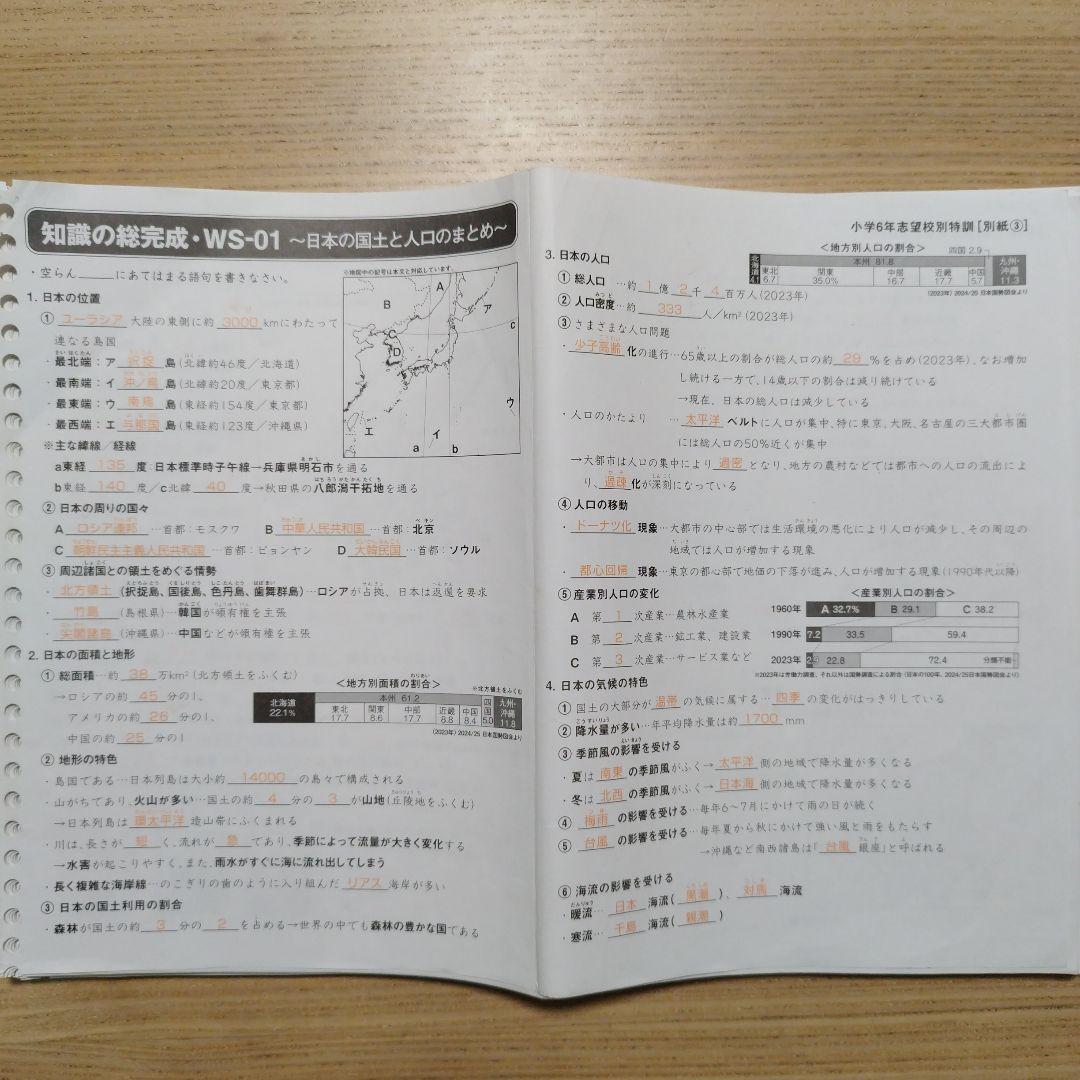 知識の総完成・WS-01 ～日本の国土と人口のまとめ～
・空らん＿＿＿にあてはまる語句を書きなさい。
※地図中の記号は本文と対応しています。
A
B
C
D
ア
c
ウ
エ
イ
a
b
1. 日本の位置
① ユーラシア 大陸の東側に約 3000 kmにわたって
連なる島国
・最北端：ア 択捉 島(北緯約46度／北海道)
・最南端：イ 沖ノ鳥 島(北緯約20度／東京都)
・最東端：ウ 南鳥 島(東経約154度／東京都)
・最西端：エ 与那国 島(東経約123度／沖縄県)
※主な緯線／経線
a東経 135 度：日本標準時子午線→兵庫県明石市を通る
b東経 140 度／c北緯 40 度→秋田県の八郎潟干拓地を通る
② 日本の周りの国々
A ロシア連邦 …首都：モスクワ B 中華人民共和国 …首都：北京
C 朝鮮民主主義人民共和国 …首都：ピョンヤン D 大韓民国 …首都：ソウル
③ 周辺諸国との領土をめぐる情勢
・北方領土(択捉島、国後島、色丹島、歯舞群島)…ロシアが占拠、日本は返還を要求
・竹島(島根県)…韓国が領有権を主張
・尖閣諸島(沖縄県)…中国などが領有権を主張
2. 日本の面積と地形
① 総面積…約 38 万km²(北方領土をふくむ)
→ロシアの約 45 分の1、
アメリカの約 26 分の1、
中国の約 25 分の1
＜地方別面積の割合＞
※北方領土をふくむ
北海道 22.1% 本州 61.2 東北 17.7 関東 8.6 中部 17.7 近畿 8.8 中国 8.4 四国 5.0 九州・沖縄 11.8
(2023年) 2024/25 日本国勢図会より
② 地形の特色
・島国である…日本列島は大小約 14000 の島々で構成される
・山がちであり、火山が多い…国土の約 4 分の 3 が山地(丘陵地をふくむ)
→日本列島は 環太平洋 造山帯にふくまれる
・川は、長さが 短 く、流れが 急 であり、季節によって流量が大きく変化する
→水害が起こりやすく、また、雨水がすぐに海に流れ出してしまう
・長く複雑な海岸線…のこぎりの歯のように入り組んだ リアス 海岸が多い
③ 日本の国土利用の割合
・森林が国土の約 3 分の 2 を占める→世界の中でも森林の豊かな国である
小学6年志望校別特訓［別紙③］
3. 日本の人口
＜地方別人口の割合＞
四国 2.9
北海道 4.1 本州 81.8 東北 6.7 関東 35.0% 中部 16.7 近畿 17.7 中国 5.7 九州・沖縄 11.3
(2023年) 2024/25 日本国勢図会より
① 総人口 …約 1 億 2 千 4 百万人(2023年)
② 人口密度…約 333 人/km²(2023年)
③ さまざまな人口問題
・少子高齢 化の進行…65歳以上の割合が総人口の約 29 %を占め(2023年)、なお増加
し続ける一方で、14歳以下の割合は減り続けている
→現在、日本の総人口は減少している
・人口のかたより …太平洋 ベルトに人口が集中、特に東京、大阪、名古屋の三大都市圏
には総人口の50%近くが集中
→大都市は人口の集中により 過密 となり、地方の農村などでは都市への人口の流出によ
り、過疎 化が深刻になっている
④ 人口の移動
・ドーナツ化 現象…大都市の中心部では生活環境の悪化により人口が減少し、その周辺の
地域では人口が増加する現象
・都心回帰 現象…東京の都心部で地価の下落が進み、人口が増加する現象(1990年代以降)
⑤ 産業別人口の変化
A 第 1 次産業…農林水産業
B 第 2 次産業…鉱工業、建設業
C 第 3 次産業…サービス業など
＜産業別人口の割合＞
1960年 A 32.7% B 29.1 C 38.2
1990年 7.2 33.5 59.4
2023年 22.8 72.4 分類不能
※2023年は労働力調査、それ以外は国勢調査による割合 (日本の100年、2024/25日本国勢図会より)
4. 日本の気候の特色
① 国土の大部分が 温帯 の気候に属する…四季 の変化がはっきりしている
② 降水量が多い…年平均降水量は約 1700 mm
③ 季節風の影響を受ける
・夏は 南東 の季節風がふく→太平洋 側の地域で降水量が多くなる
・冬は 北西 の季節風がふく→日本海 側の地域で降水量が多くなる
④ 梅雨 の影響を受ける…毎年6～7月にかけて雨の日が続く
⑤ 台風 の影響を受ける…毎年夏から秋にかけて強い風と雨をもたらす
→沖縄など南西諸島は「台風 銀座」と呼ばれる
⑥ 海流の影響を受ける
・暖流… 日本 海流( 黒潮 )、対馬 海流
・寒流… 千島 海流( 親潮 )